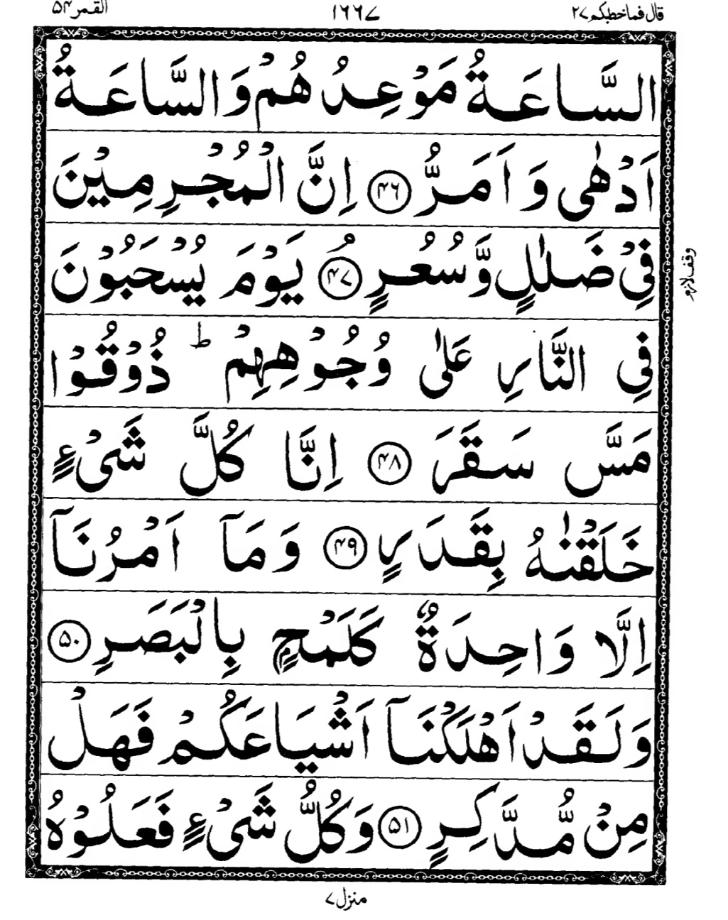 قال فما خطبكم ٢٧
١٦٦٧
القمر ٥٤
السَّاعَةُ مَوْعِدُهُمْ وَالسَّاعَةُ
اَدْهٰى وَاَمَرُّ ۴۶ اِنَّ الْمُجْرِمِيْنَ
فِيْ ضَلٰلٍ وَّسُعُرٍ ۴۷ يَوْمَ يُسْحَبُوْنَ
وقف لازم
فِي النَّارِ عَلٰى وُجُوْهِهِمْ ؕ ذُوْقُوْا
مَسَّ سَقَرَ ۴۸ اِنَّا كُلَّ شَيْءٍ
خَلَقْنٰهُ بِقَدَرٍ ۴۹ وَمَآ اَمْرُنَآ
اِلَّا وَاحِدَةٌ كَلَمْحٍۭ بِالْبَصَرِ ۵۰
وَلَقَدْ اَهْلَكْنَآ اَشْيَاعَكُمْ فَهَلْ
مِنْ مُّدَّكِرٍ ۵۱ وَكُلُّ شَيْءٍ فَعَلُوْهُ
منزل ٧